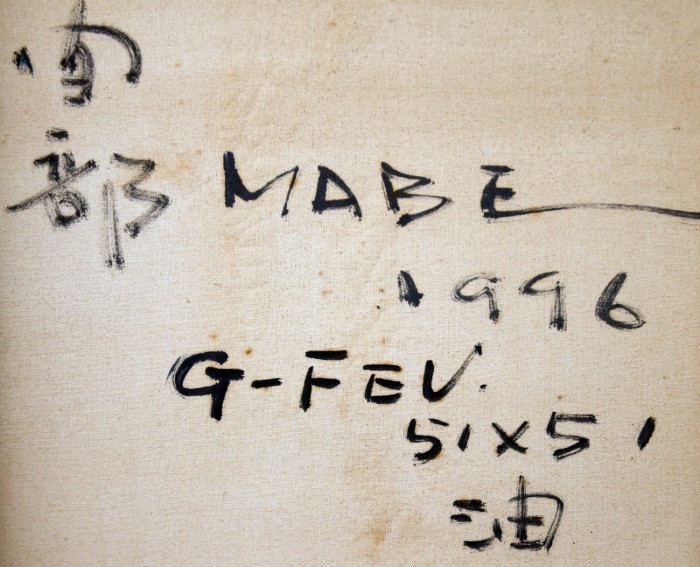 間
部 MABE
1996
G-FEV.
51x51
油